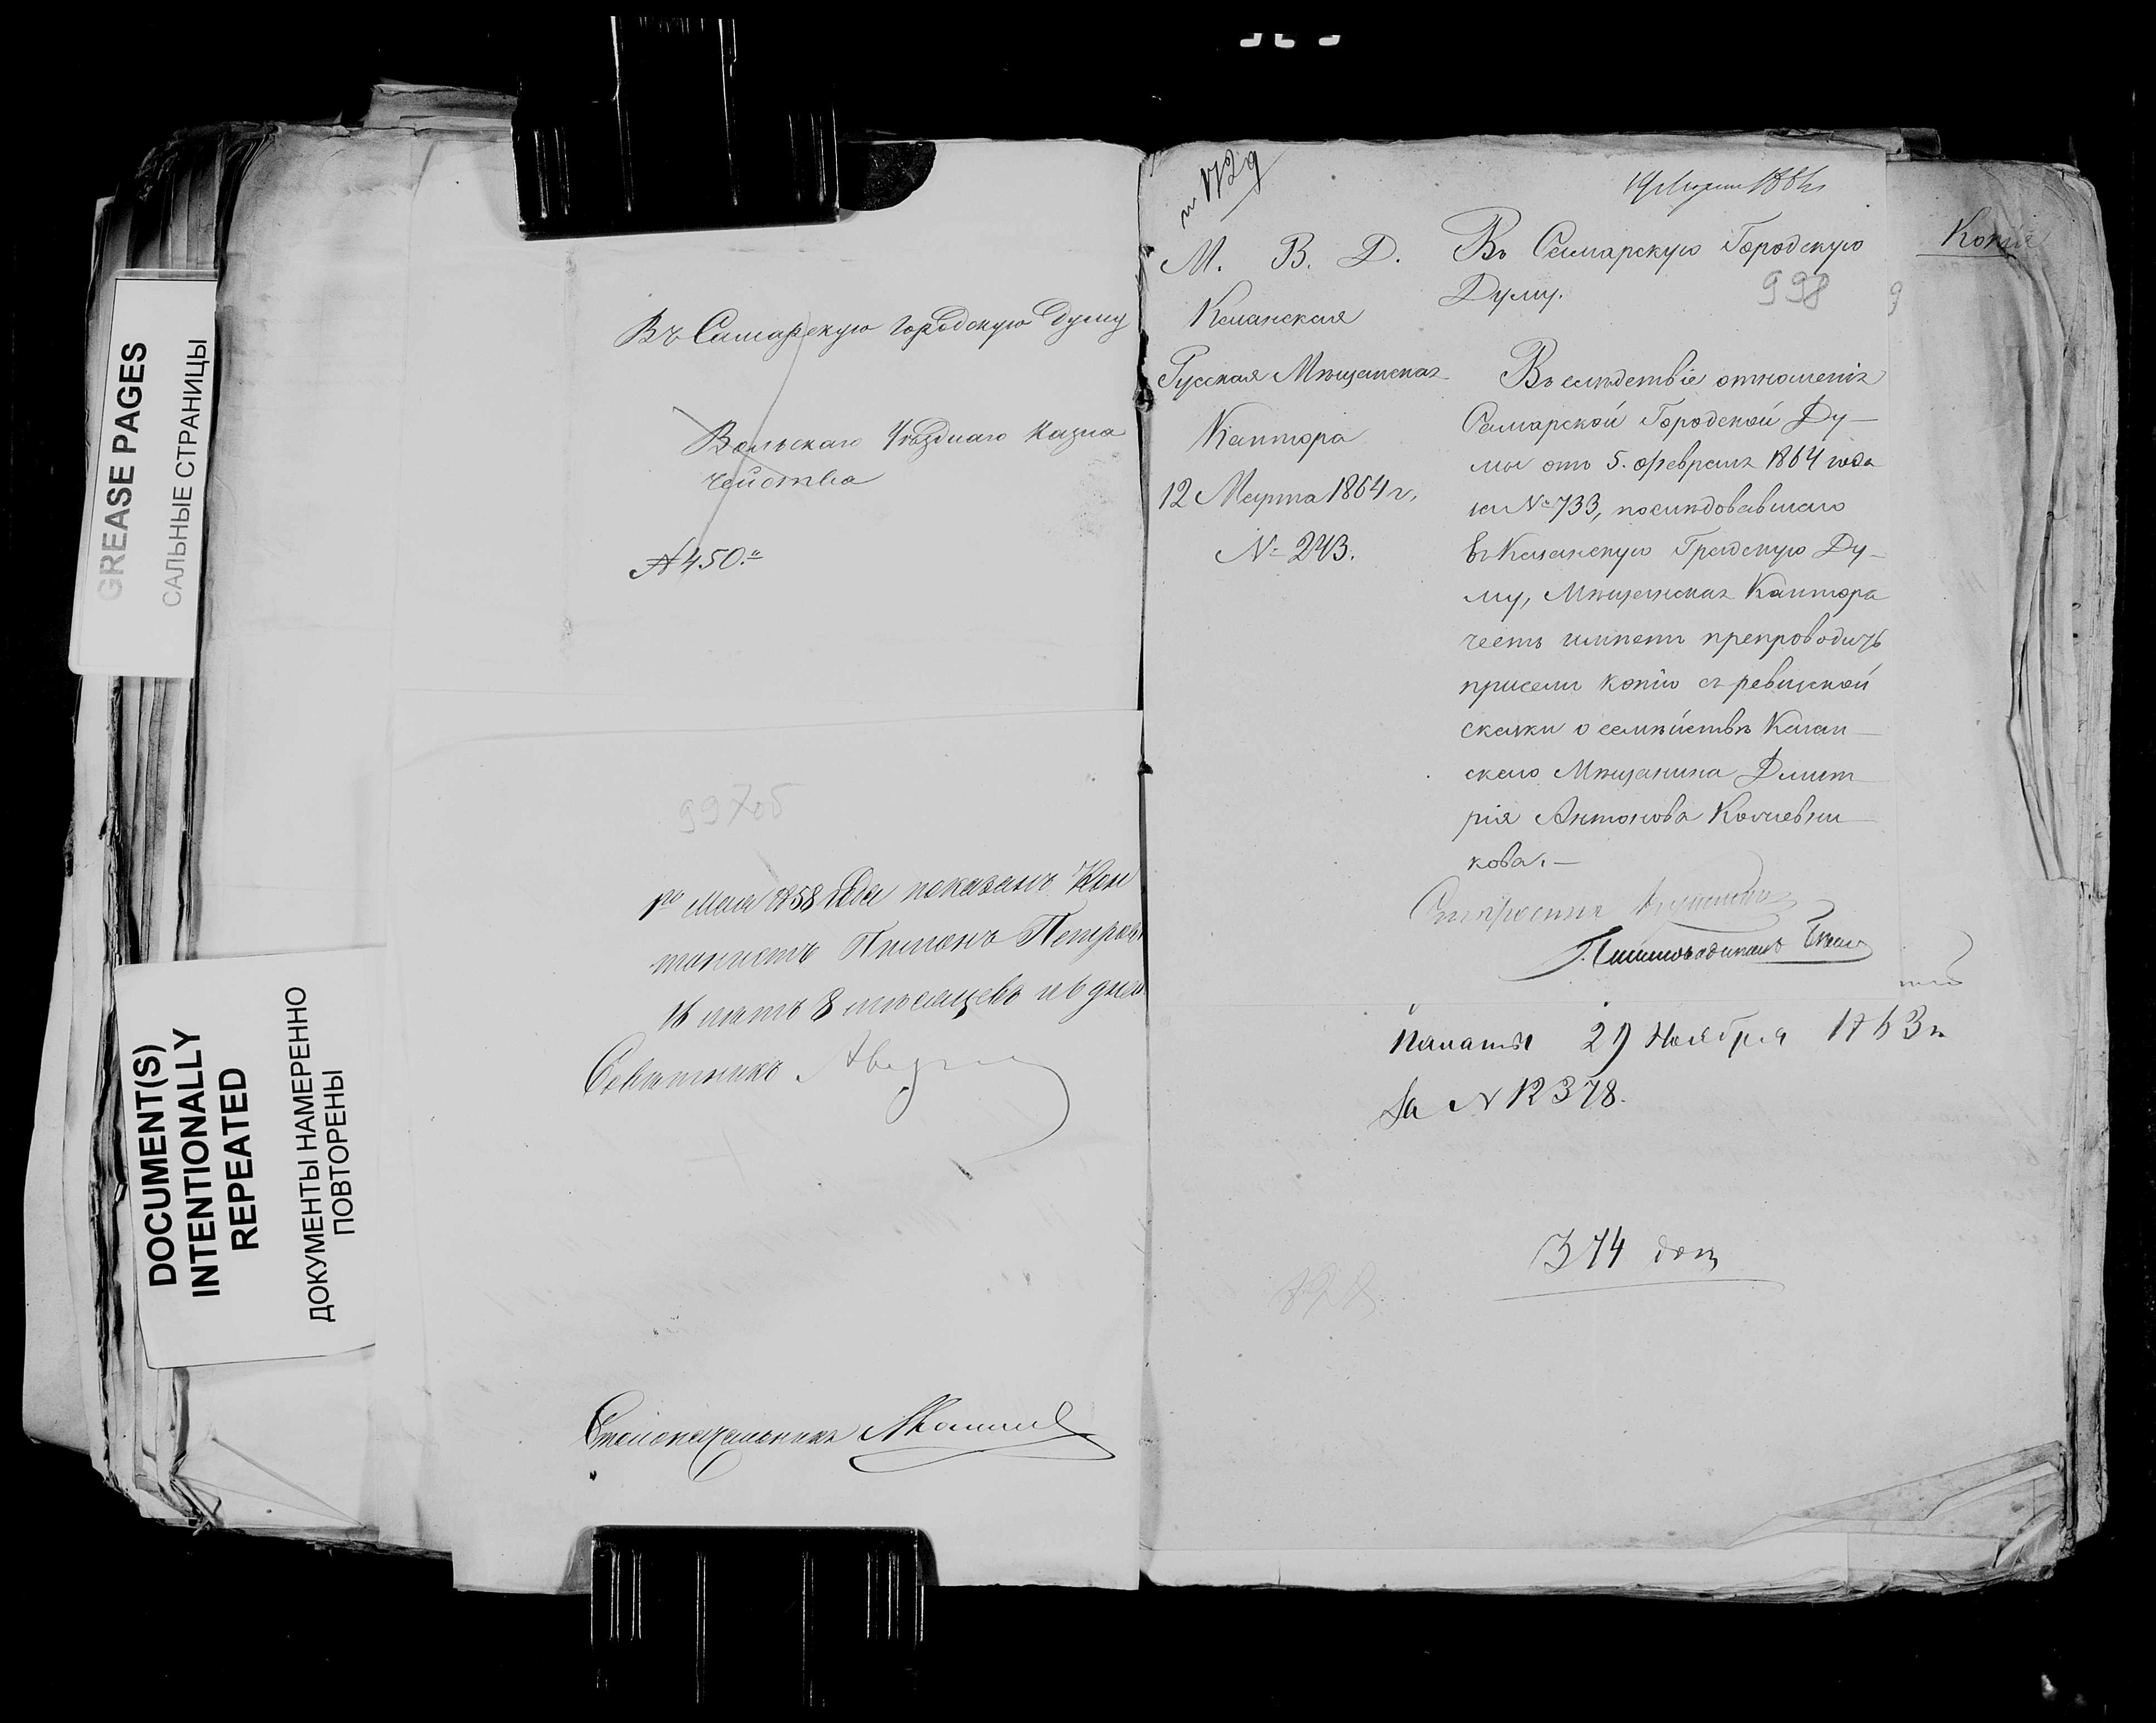 GREASE PAGES
САЛЬНЫЕ СТРАНИЦЫ
DOCUMENT(S)
INTENTIONALLY
REPEATED
ДОКУМЕНТЫ НАМЕРЕННО
ПОВТОРЕНЫ
Въ Самарскую городскую Думу
Вольскаго Уѣзднаго Казна
чейства
№ 450.
997об
1го Мая 1858 года показанъ Кан
тонистъ Петровъ
16 лѣтъ 8 мѣсяцевъ и 6 дней
Совѣтникъ
Столоначальникъ
М. В. Д.
Казанская
Русская Мѣщанская
Контора
12 Марта 1864 г.
№ 243.
Въ Самарскую Городскую
Думу.
998
Въ слѣдствіе отношенія
Самарской Городской Ду–
мы отъ 5. февраля 1864 года
за № 733, послѣдовавшаго
въ Казанскую Градскую Ду–
му, Мѣщанская Контора
честь имѣетъ препроводить
присемъ копію съ ревизской
сказки о семѣйствѣ Казан–
скаго Мѣщанина Дмит–
рія Антонова Колчевни–
кова.–
Староста
Копія
9
Палаты 29 Ноября 1863 г
За № 12378.
374